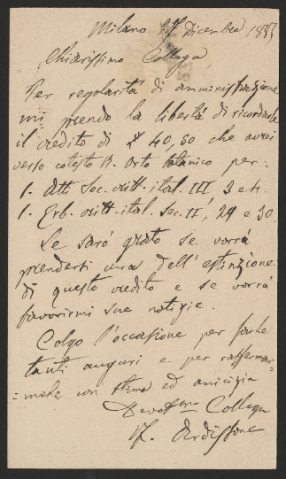 Milano 27 Dicembre 1885
Chiarissimo Collega
Per regolarità di amministrazione
mi prendo la libertà di ricordarle
il credito di £ 40,50 che avrei
verso cotesto R. Orto botanico per:
1. Atti Soc. critt. ital. III, 3 e 4.
1. Erb. critt. ital. Sec. II, 29 e 30.
Le sarò grato se vorrà
prendersi cura dell'estinzione
di questo credito e se vorrà
favorirmi sue notizie.
Colgo l'occasione per farle
tanti auguri e per raffermar=
=mele con stima ed amicizia
Devotmo Collega
F. Ardissone